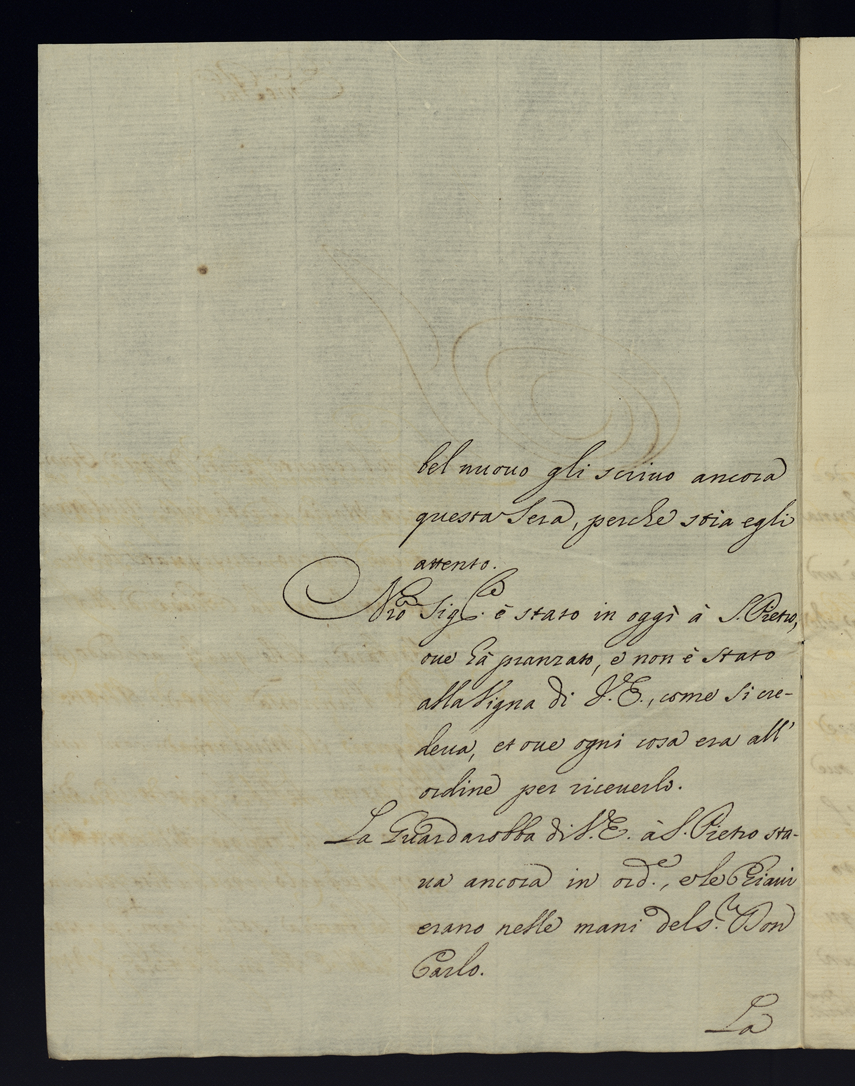 bel nuouo gli scriuo ancora
questa Sera, perche stia egli
attento.
Nrõ Sig.re è stato in oggi à S. Pietro,
oue hà pranzato, e non è stato
alla Vigna di V. E., come si cre-
deua, et oue ogni cosa era all'
ordine per riceuerlo.
La Guardarobba di V. E. à S. Pietro sta-
ua ancora in ord.e, e le Chiaui
erano nelle mani del S.r Don
Carlo.
La